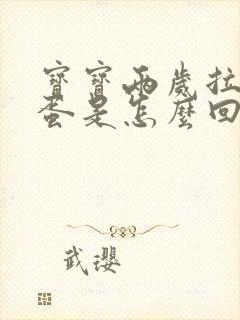 寶寶兩歲拉
蛋是怎麼回
武瓔